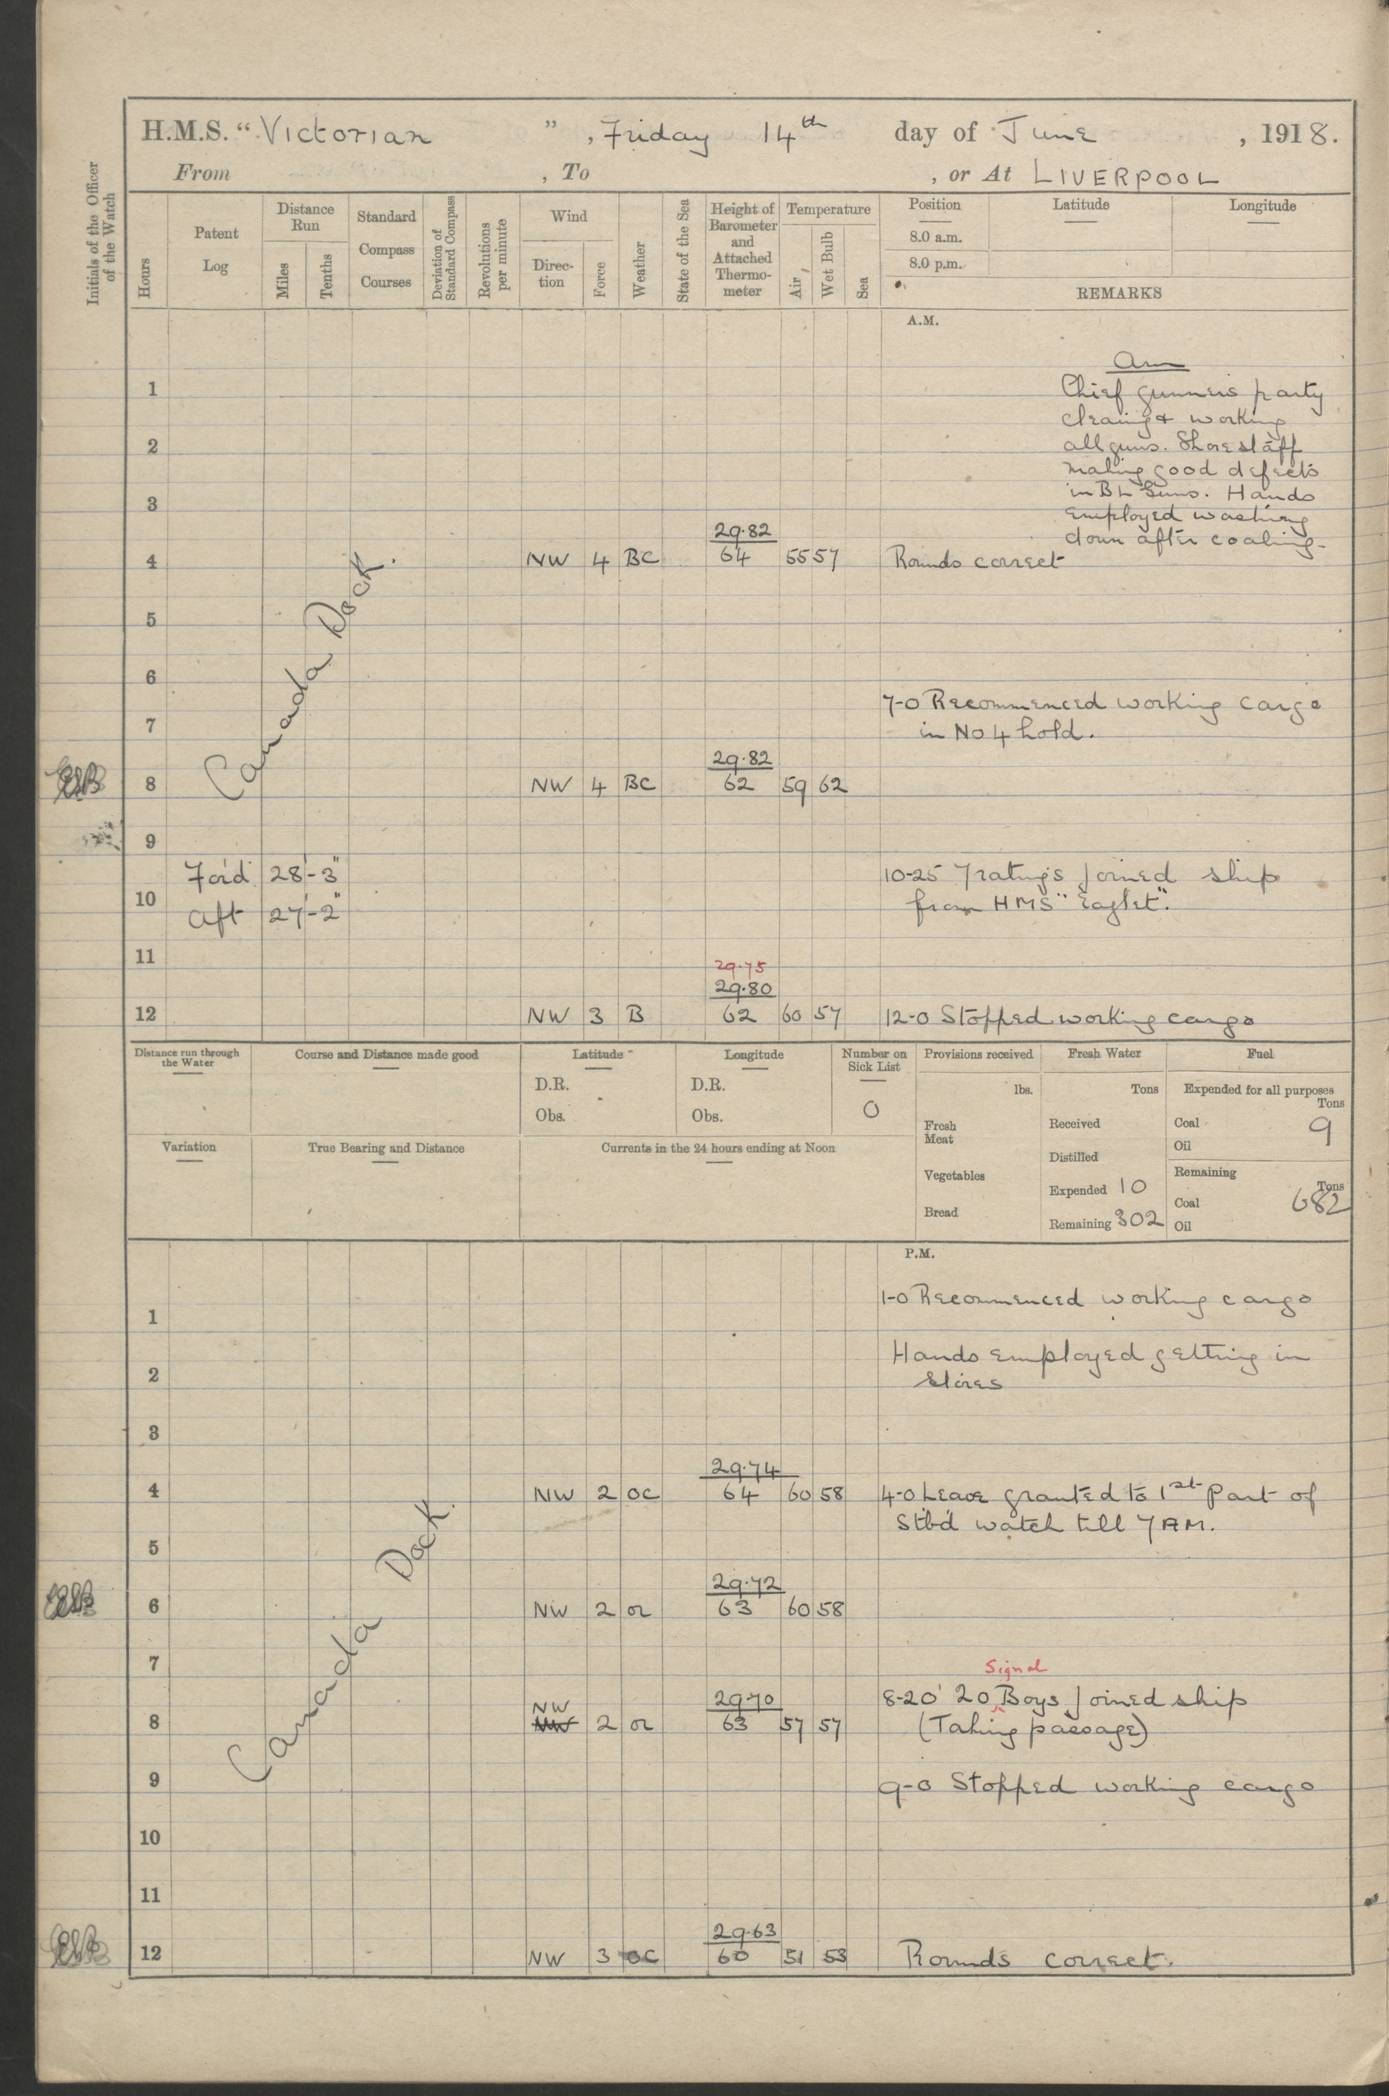 H.M.S. "Victorian", Friday 14th day of June, 1918.
From , To , or At LIVERPOOL
Initials of the Officer of the Watch
Hours
Patent Log
Distance Run
Miles
Tenths
Standard Compass Courses
Deviation of Standard Compass
Revolutions per minute
Wind
Direction
Force
Weather
State of the Sea
Height of Barometer and Attached Thermometer
Temperature
Air
Wet Bulb
Sea
Position
Latitude
Longitude
8.0 a.m.
8.0 p.m.
REMARKS
A.M.
Am
1 Chief gunners party
cleaing & working
2 all guns. Shore staff
making good defects
3 in BL Guns. Hands
employed washing
down after coaling.
29.82
4 NW 4 BC 64 55 57 Rounds correct
Canada Dock.
5
6
7-0 Recommenced working cargo
7 in No 4 hold.
29.82
8 NW 4 BC 62 59 62
9
For'd 28'-3" 10-25 7 ratings joined ship
10
Aft 27'-2" from HMS "Eaglet".
11
29.75
29.80
12 NW 3 B 62 60 57 12-0 Stopped working cargo
Distance run through the Water
Course and Distance made good
Latitude
D.R.
Obs.
Longitude
D.R.
Obs.
Number on Sick List
0
Provisions received
lbs.
Fresh Meat
Vegetables
Bread
Fresh Water
Tons
Received
Distilled
Expended 10
Remaining 302
Fuel
Expended for all purposes
Tons
Coal 9
Oil
Remaining
Tons
Coal 682
Oil
Variation
True Bearing and Distance
Currents in the 24 hours ending at Noon
P.M.
1-0 Recommenced working cargo
1
Hands employed getting in
2 stores
3
29.74
4 NW 2 OC 64 60 58 4-0 Leave granted to 1st part of
Stb'd watch till 7 AM.
5
Canada Dock.
29.72
6 NW 2 or 63 60 58
7
Signal
NW 29.70 8-20 20 Boys joined ship
8 NW 2 or 63 57 57 (Taking passage)
9 9-0 Stopped working cargo
10
11
29.63
12 NW 3 OC 60 51 53 Rounds correct.